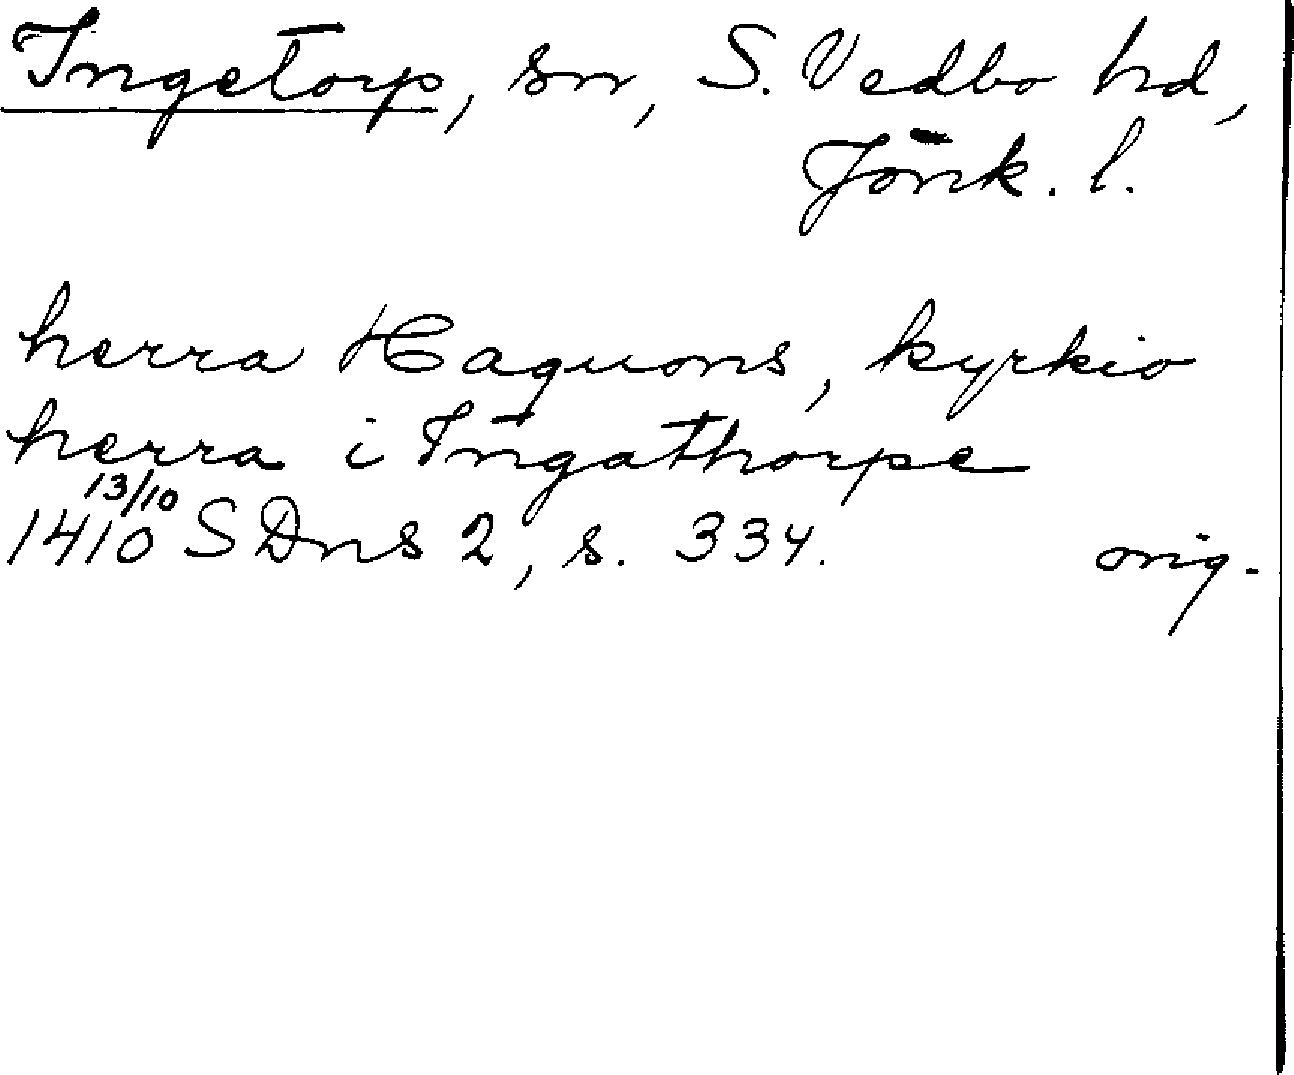 Ingetorp, sn, S. Vedbo hd,
Jönk. l.
herra Haquons, kyrkio
herra i Ingathorpe
13/10
1410 SDns 2, s. 334. orig.